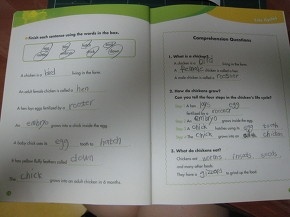 Finish each sentence using the words in the box.
A chicken is a bird living in the farm.
An adult female chicken is called a hen
A hen has eggs fertilized by a rooster
An embryo grows into a chick inside the egg.
A baby chick uses its egg tooth to hatch
It has yellow fluffy feathers called down
The chick grows into an adult chicken in 6 months.
Comprehension Questions
1. What is a chicken?
A chicken is a bird living in the farm.
A female chicken is called a hen.
A male chicken is called a rooster
2. How do chickens grow?
Can you tell the four steps in the chicken's life cycle?
A hen egg
fertilized by a rooster
An embryo grows inside the egg.
A chick hatches using its egg tooth
The chick grows into an chicken
3. What do chickens eat?
Chickens eat worms insects seeds
and many other foods.
They have a gizzard to grind up the food.